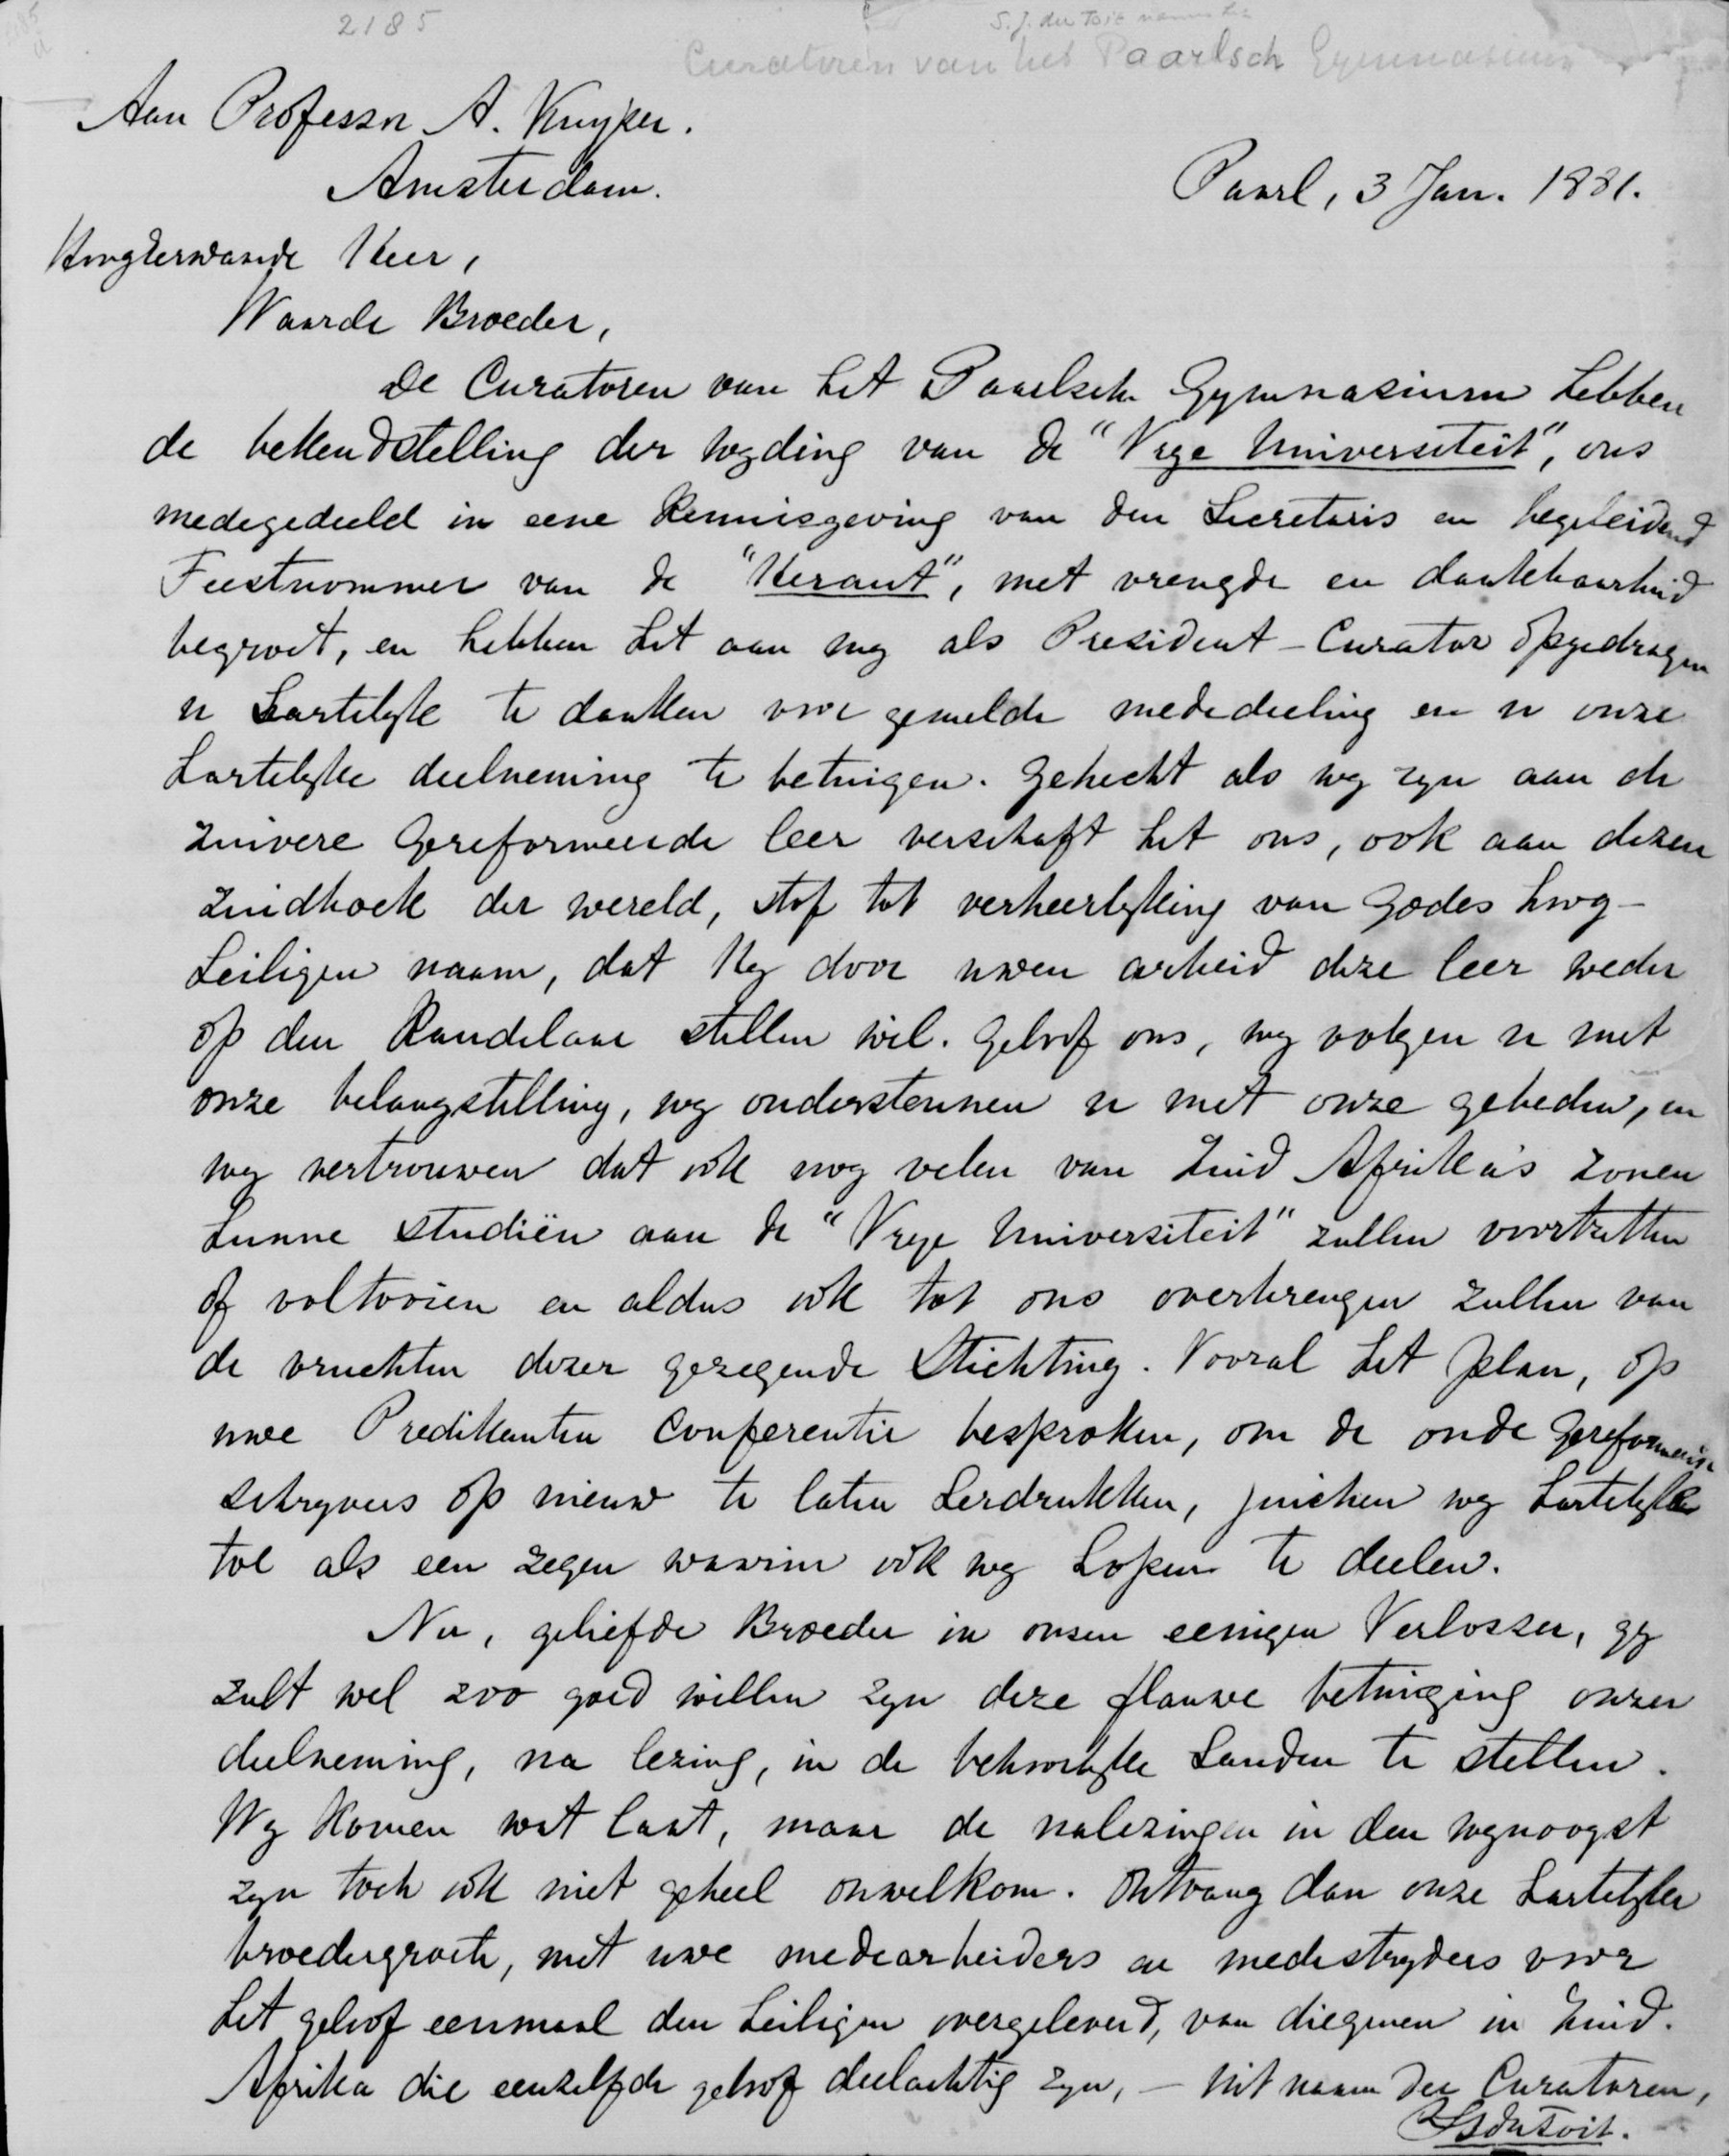 2185
S. J. du Toit namens
Curatoren van het Paarlsch Gymnasium
Aan Professor A. Kuyper.
Amsterdam.
Paarl, 3 Jan. 1881.
Hoogeerwaarde Heer,
Waarde Broeder,
De Curatoren van het Paarlsch Gymnasium hebben
de bekendstelling der wyding van de "Vrye Universiteit", ons
medegedeeld in eene kennisgeving van den Secretaris en begeleidend
Feestnommer van de "Heraut", met vreugde en dankbaarheid
begroet, en hebben het aan my als President-Curator opgedragen
u hartelyk te danken voor gemelde mededeeling en u onze
hartelyke deelneming te betuigen. Gehecht als wy zyn aan de
zuivere Gereformeerde leer verschaft het ons, ook aan dezen
zuidhoek der wereld, stof tot verheerlyking van Godes hoog-
heiligen naam, dat Hy door uwen arbeid deze leer weder
op den Kandelaar stellen wil. Geloof ons, wy volgen u met
onze belangstelling, wy ondersteunen u met onze gebeden, en
wy vertrouwen dat ook nog velen van Zuid Afrika's zonen
hunne studiën aan de "Vrye Universiteit" zullen voortzetten
of voltooien en aldus ook tot ons overbrengen zullen van
de vruchten dezer gezegende Stichting. Vooral het plan, op
uwe Predikanten Conferentie besproken, om de oude Gereformeerde
schryvers op nieuw te laten herdrukken, juichen wy hartelyk
toe als een zegen waarin ook wy hopen te deelen.
Nu, geliefde Broeder in onzen eenigen Verlosser, gy
zult wel zoo goed willen zyn deze flauwe betuiging onzer
deelneming, na lezing, in de behoorlyke handen te stellen.
Wy komen wat laat, maar de nalezingen in den wynoogst
zyn toch ook niet geheel onwelkom. Ontvang dan onze hartelyke
broedergroete, met uwe medearbeiders en medestryders voor
het geloof eenmaal den heiligen overgeleverd, van diegenen in Zuid-
Afrika die eenzelfde geloof deelachtig zyn, — Uit naam der Curatoren,
S J du Toit.